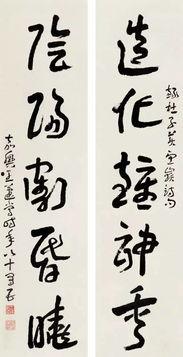 造化鍾神秀
錄杜子美望嶽詩句
陰陽割昏曉
嘉興王蘧常時年八十